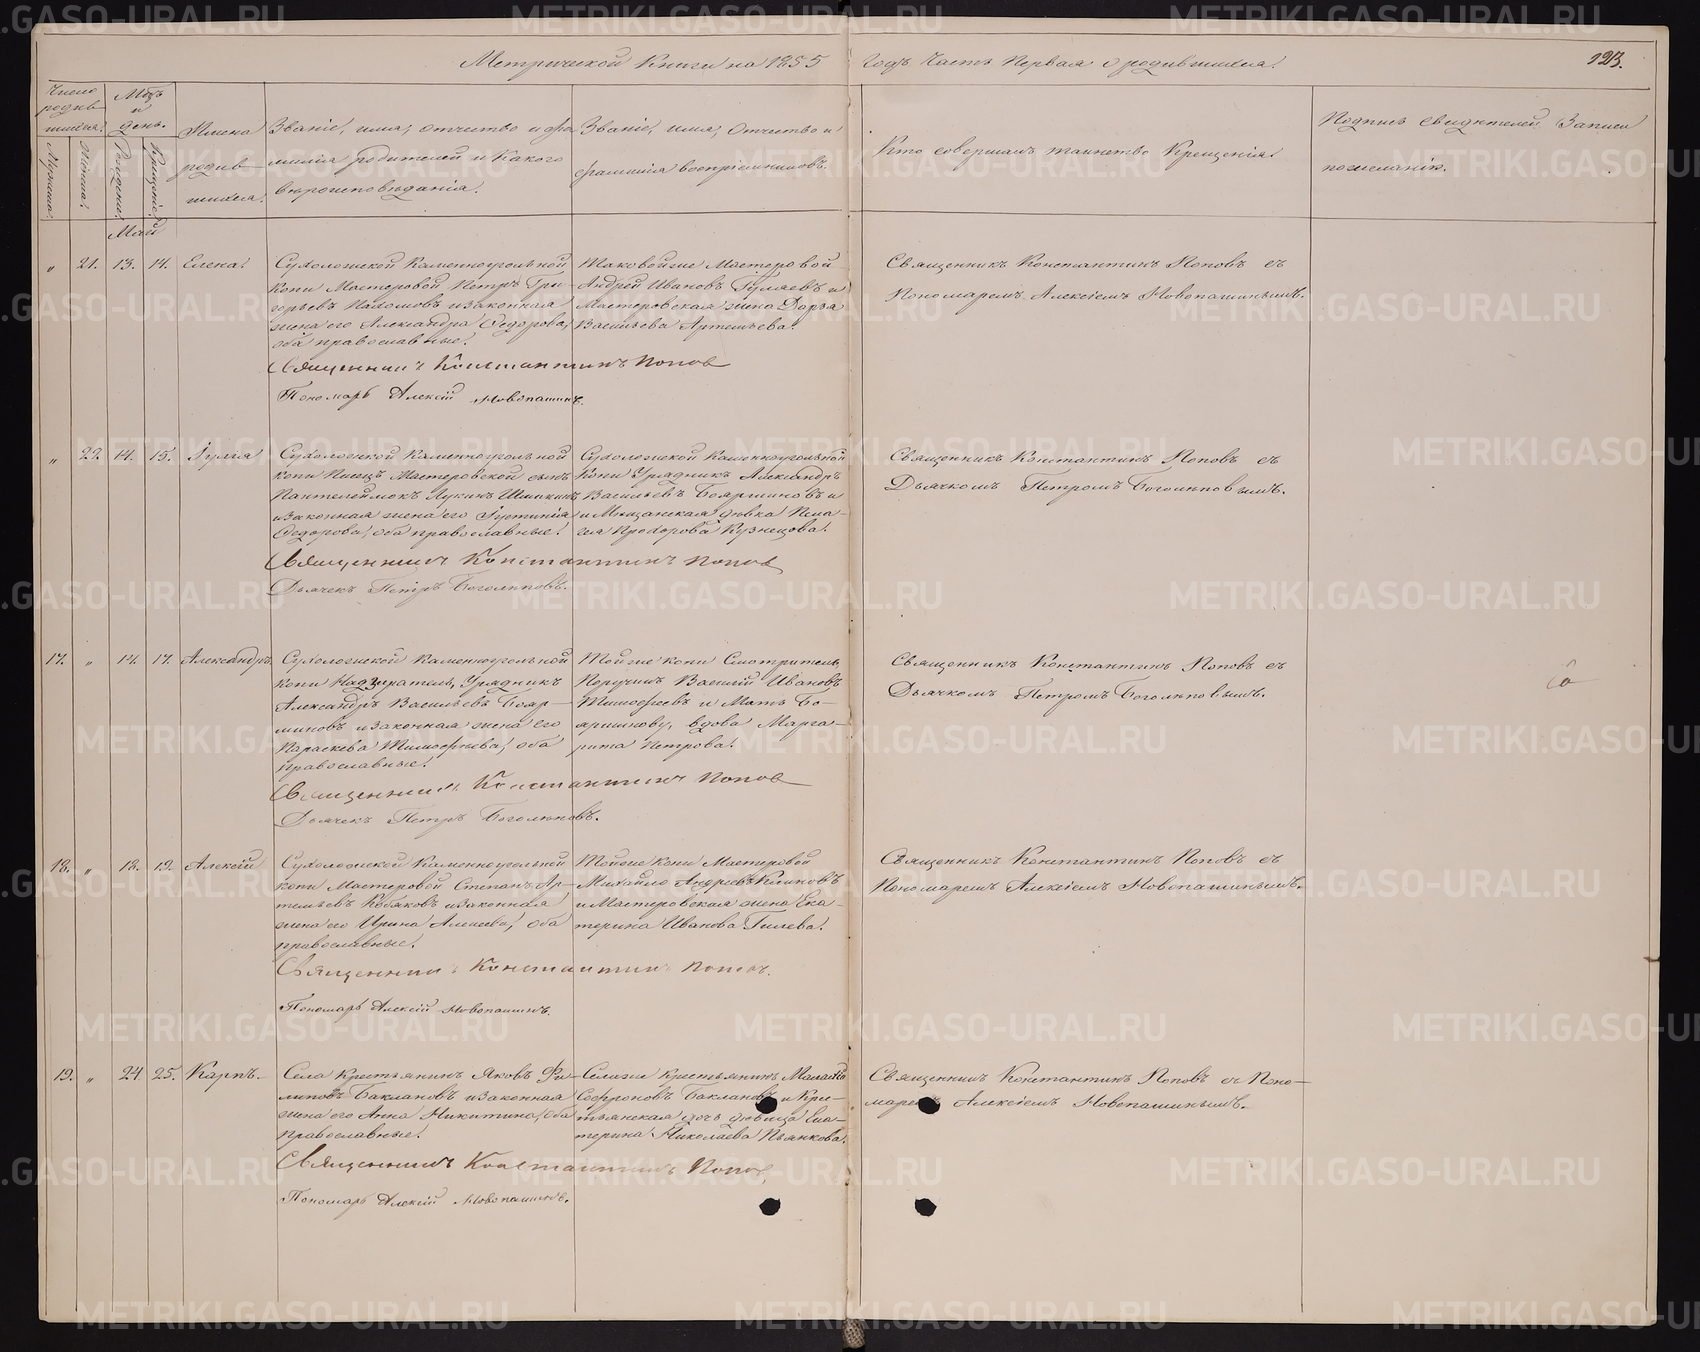 Метрической Книги на 1855 Годъ Часть Первая о родившихся.
123.
Число родившихся.
Мужеска.
Женска.
Мѣсяцъ и день.
Рожденія.
Крещенія.
Имена родившихся.
Званіе, имя, отчество и фамилія родителей и Какого вѣроисповѣданія.
Званіе, имя, Отчество и фамилія воспріемниковъ.
Кто совершалъ таинство Крещенія.
Подпись свидѣтелей Записи по желанію.
Май
„ 21. 13. 14. Елена.
Сухоложской Каменноугольной
копи Мастеровой Петръ Гри-
горьевъ Пахомовъ и законная
жена его Александра Ѳедорова,
оба православные.
Таковойже Мастеровой
Андрей Ивановъ Гуляевъ и
Мастеровская жена Дарья
Васильева Артемьева.
Священникъ Константинъ Поповъ съ
Пономаремъ Алексіемъ Новопашинымъ.
Священникъ Константинъ Попов
Пономарь Алексій Новопашинъ.
„ 22. 14. 15. Іулія
Сухоложской Каменноугольной
копи Писецъ Мастеровской сынъ
Пантелеймонъ Лукинъ Шишкинъ
и законная жена его Іустинія
Ѳедорова, оба православные.
Сухоложской Каменноугольной
Копи Урядникъ Александръ
Васильевъ Бояршиновъ и
и Мѣщанская дѣвка Пела-
гія Прохорова Кузнецова.
Священникъ Константинъ Поповъ съ
Дьячкомъ Петромъ Боголѣповымъ.
Священникъ Константинъ Попов
Дьячекъ Петръ Боголѣповъ.
17. „ 14. 17. Александръ.
Сухоложской Каменноугольной
копи Надзиратель, Урядникъ
Александръ Васильевъ Бояр-
шиновъ и законная жена его
Параскева Тимофѣева, оба
православные.
Тойже копи Смотритель,
Поручикъ Василій Ивановъ
Тимофеевъ и Мать Бо-
яршинову, вдова Марга-
рита Петрова.
Священникъ Константинъ Поповъ съ
Дьячкомъ Петромъ Боголѣповымъ.
Священникъ Константинъ Попов
Дьячекъ Петръ Боголѣповъ.
18. „ 18. 19. Алексій
Сухоложской Каменноугольной
копи Мастеровой Степанъ Ар-
темьевъ и законная
жена его Ирина Алексеева, оба
православные.
Тойже копи Мастеровой
Михайло Андреевъ
и Мастеровская жена Ека-
терина Иванова Гилева.
Священникъ Константинъ Поповъ съ
Пономаремъ Алексіемъ Новопашинымъ.
Священникъ Константинъ Поповъ.
Пономарь Алексій Новопашинъ.
19. „ 24. 25. Карпъ.
Села Крестьянинъ Яковъ Фи-
липовъ Баклановъ и законная
жена его Анна Никитина, оба
православные.
Селаже крестьянинъ Малафѣй
Софроновъ Баклановъ и Крес-
тьянская дочь дѣвица Ека-
терина Николаева Пьянкова.
Священникъ Константинъ Поповъ съ Поно-
маремъ Алексіемъ Новопашинымъ.
Священникъ Константинъ Попов
Пономарь Алексій Новопашинъ.
METRIKI.GASO-URAL.RU